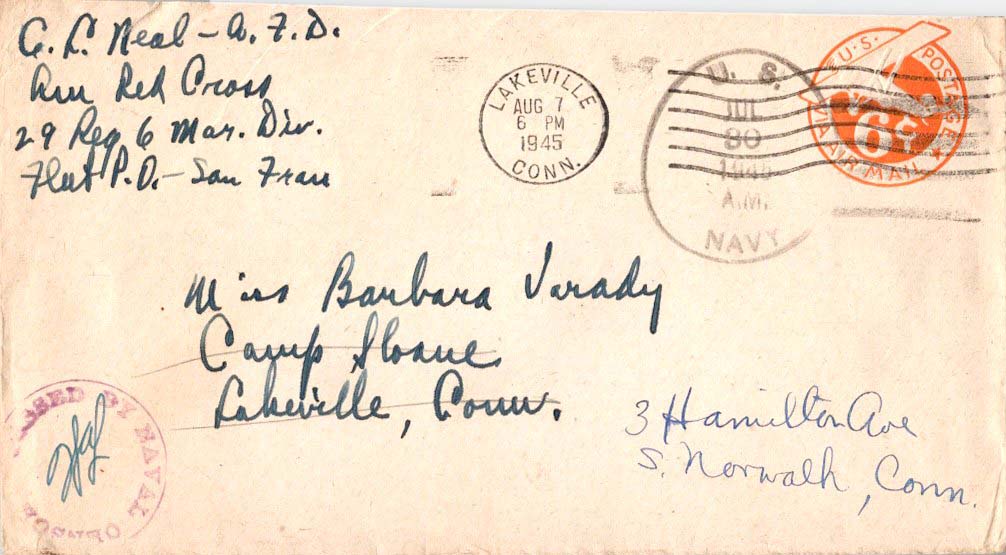 C. L. Neal - A. F. D.
Am Red Cross
29 Reg 6 Mar. Div.
Fleet P.O. - San Fran
LAKEVILLE
AUG 7
6 PM
1945
CONN.
U. S.
JUL
30
A.M.
NAVY
U.S. POSTAGE
6¢
VIA AIR MAIL
Miss Barbara Varady
Camp Sloane
Lakeville, Conn.
3 Hamilton Ave
S. Norwalk, Conn.
SSED BY NAVAL CENSOR